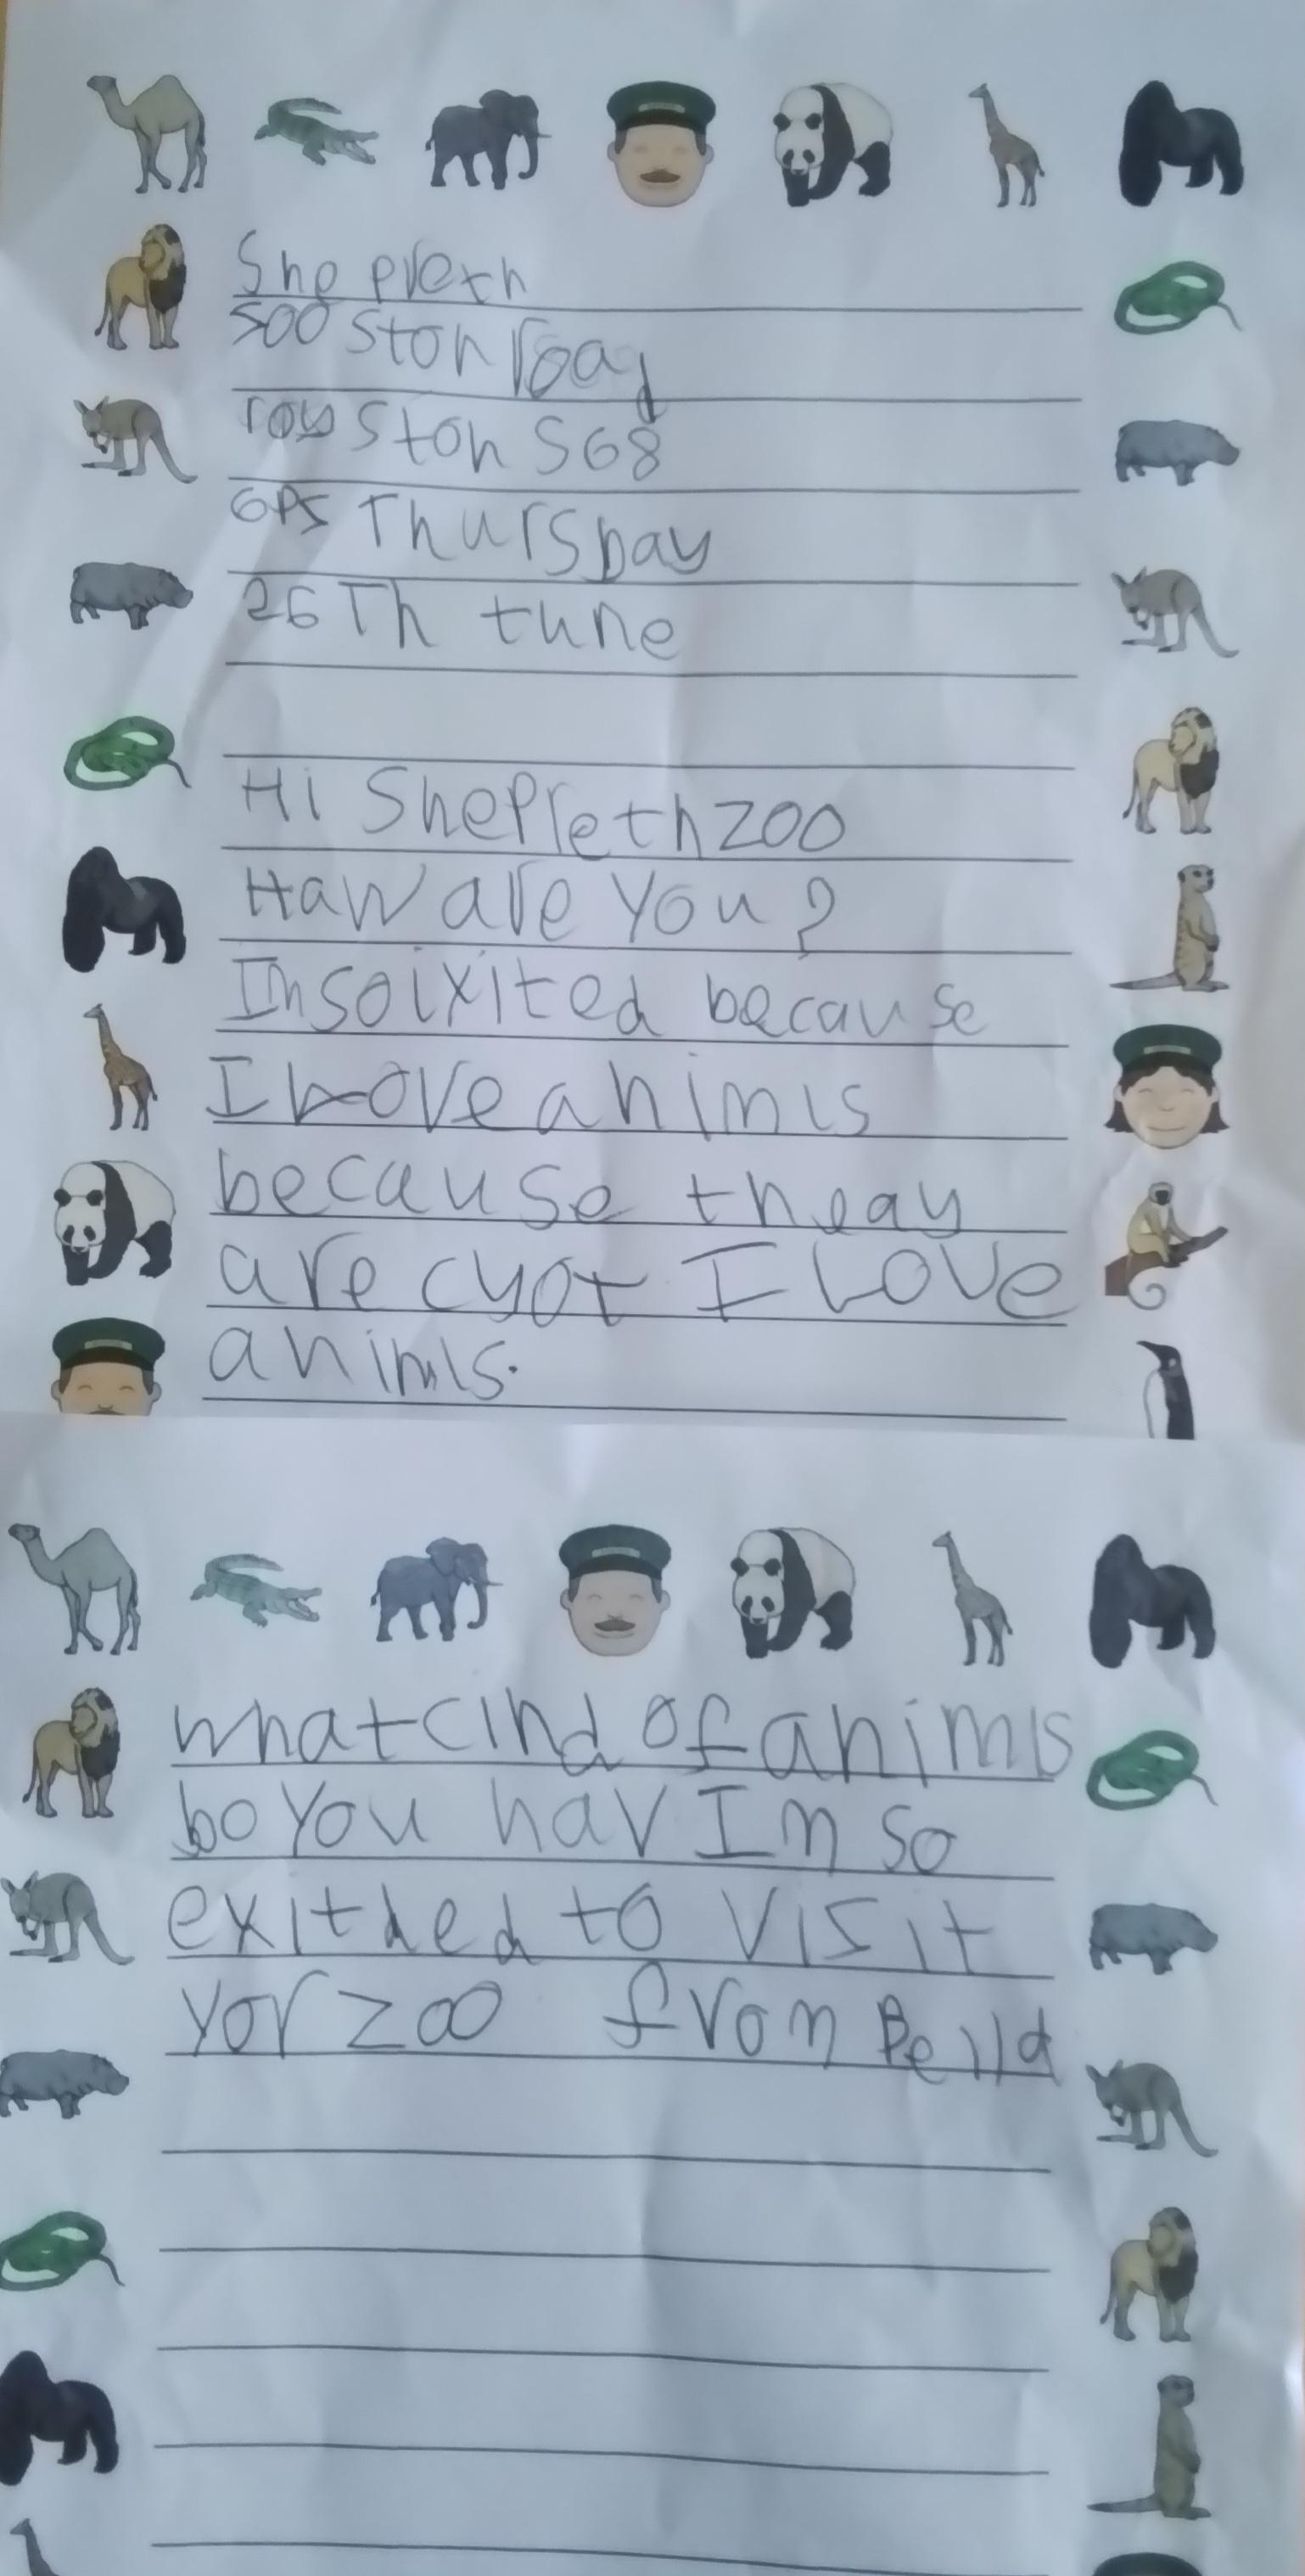 Shepreth
Zoo Ston road
royston SG8
6PS Thursbay
26Th tune
Hi ShePrethzoo
Haw are you?
Imsoixited because
I Love animls
because theay
are cyot I Love
animls.
whatcind of animls
bo you hav Im so
exithed to visit
yor zoo from Bella